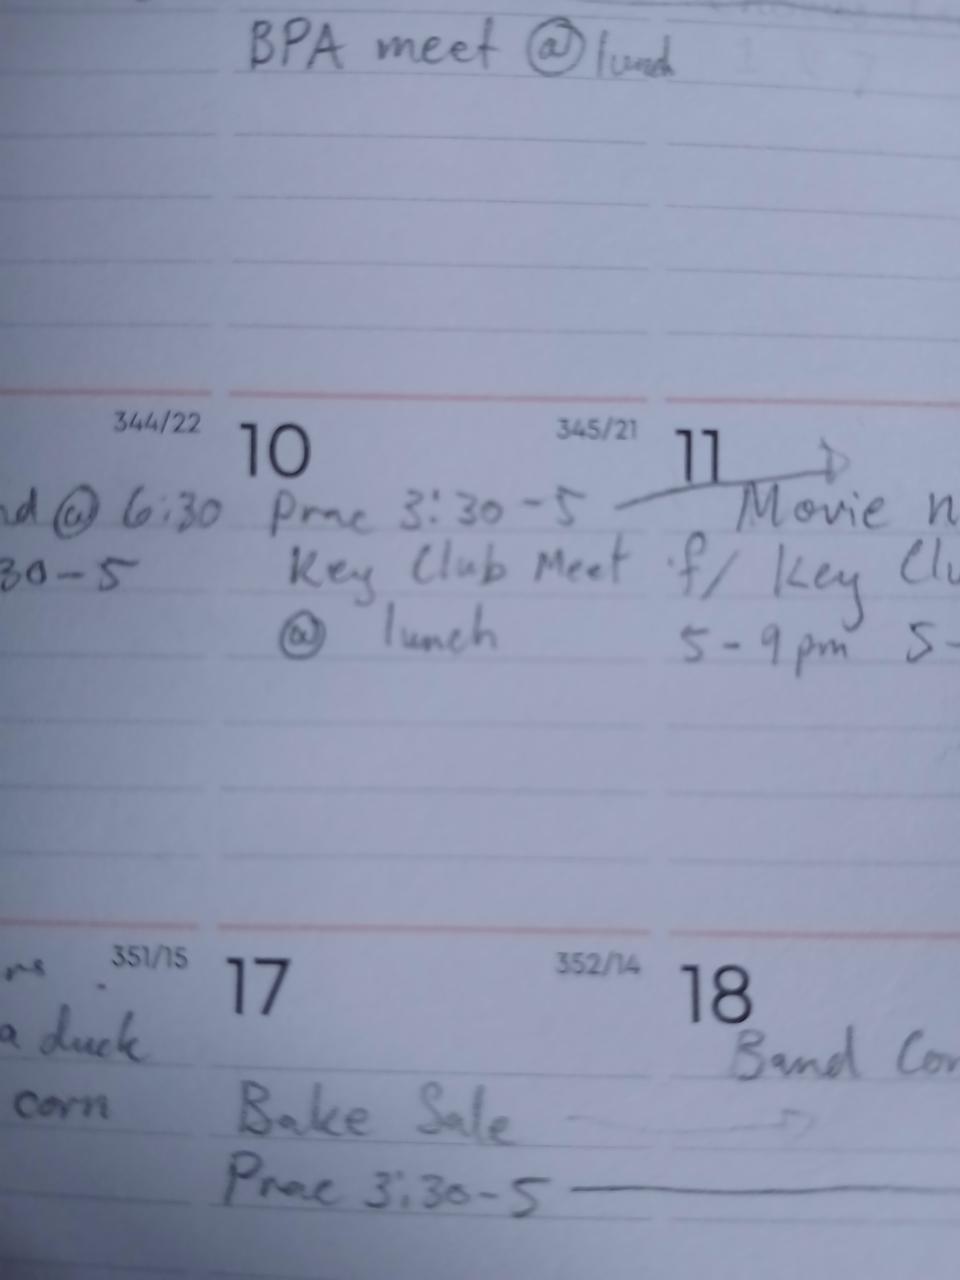 BPA meet @ lunch
344/22 10 345/21 11
nd @ 6:30 Prac 3:30-5 Movie n
30-5 Key Club Meet f/ Key Clu
@ lunch 5-9pm 5-
351/15 17 352/14 18
a duck Band Con
corn Bake Sale
Prac 3:30-5